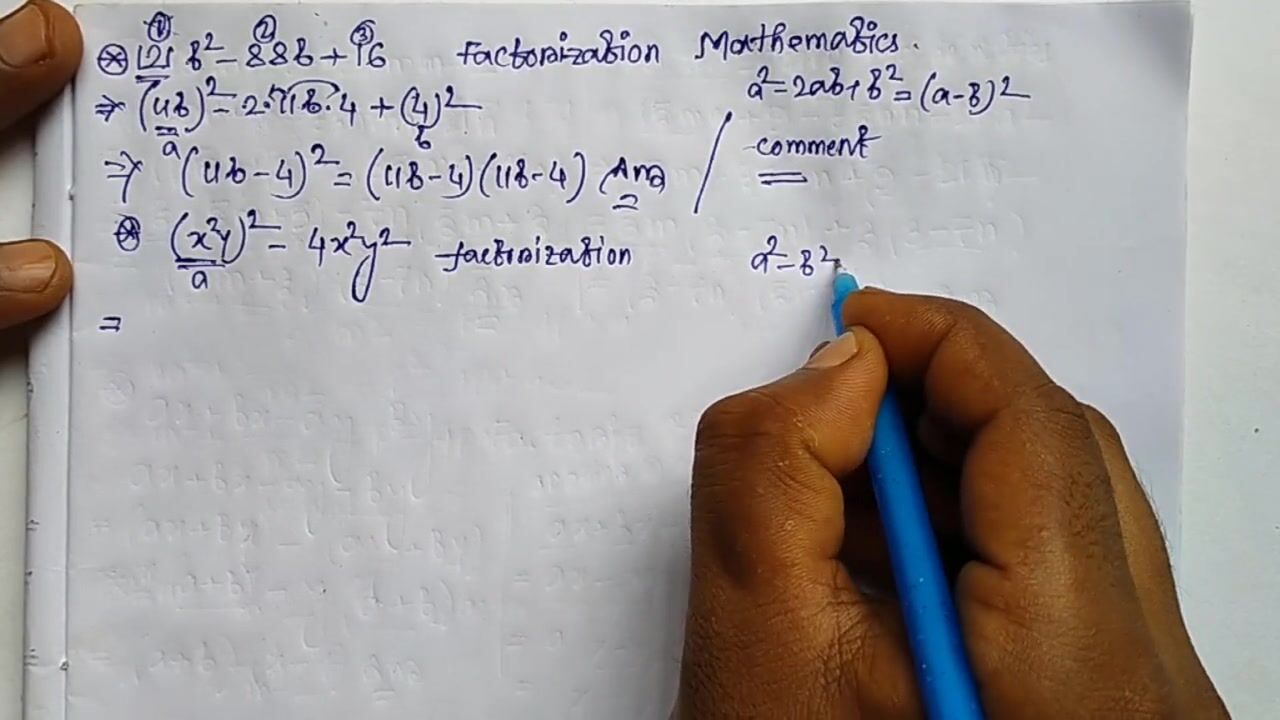 ① ② ③
⊛ 121 b² - 88b + 16 Factorization Mathematics.
⇒ (11b)² - 2·11b·4 + (4)² a² - 2ab + b² = (a-b)²
a b
⇒ (11b - 4)² = (11b - 4)(11b - 4) Ans comment
⊛ (x²y)² - 4x²y² factorization a² - b²
a
=